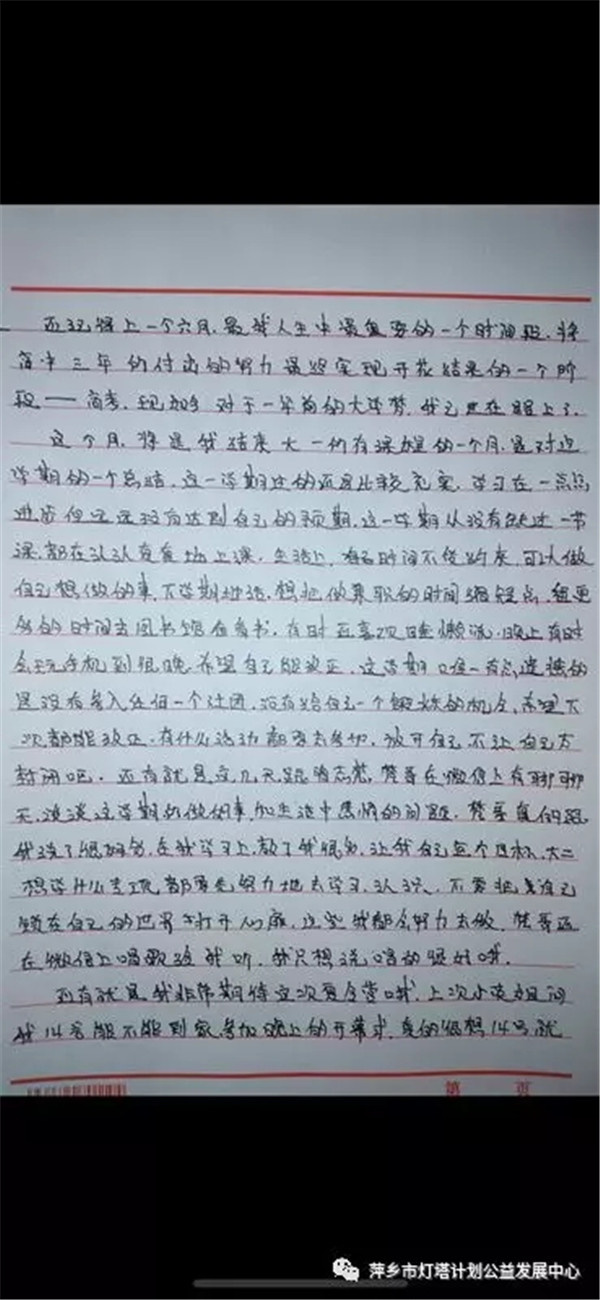 还记得上一个六月,是我人生中最重要的一个时间段,将
高中三年的付出的努力最终实现开花结果的一个阶
段——高考,现如今对于一年前的大学梦,我已在路上了。
这个月,将是我结束大一所有课程的一个月,是对这
学期的一个总结,这一学期过的还是比较充实,学习在一点点
进步但远远没有达到自己的预期,这一学期从没有缺过一节
课,都在认认真真地上课,生活上,有时间不受约束,可以做
自己想做的事,下学期的话,想把做兼职的时间缩短点,
多的时间去图书馆看看书,有时还喜欢睡懒觉,晚上有时
会玩手机到很晚,希望自己能改正,这学期唯一有点遗憾的
是没有参入任何一个社团,没有给自己一个锻炼的机会,希望下
次都能改正,有什么活动都要去参加,放开自己不让自己太
封闭吧。还有就是这几天跟哥在微信上有聊聊
天,谈谈这学期所做的事,和生活中感情的问题,梦哥真的跟
我谈了很多,在我学习上,教了我很多,让我自己定个目标,大二
想学什么专项,都要先努力地去学习,认识,不要把自己
锁在自己的世界打开心扉,这些我都会努力去做,梦哥还
在微信上唱歌给我听,我只想说唱的很好哦。
还有就是我非常期待这次夏令营哦,上次小英姐问
我14号能不能到家参加晚上的开幕式,真的很想14号就
第 页
萍乡市灯塔计划公益发展中心